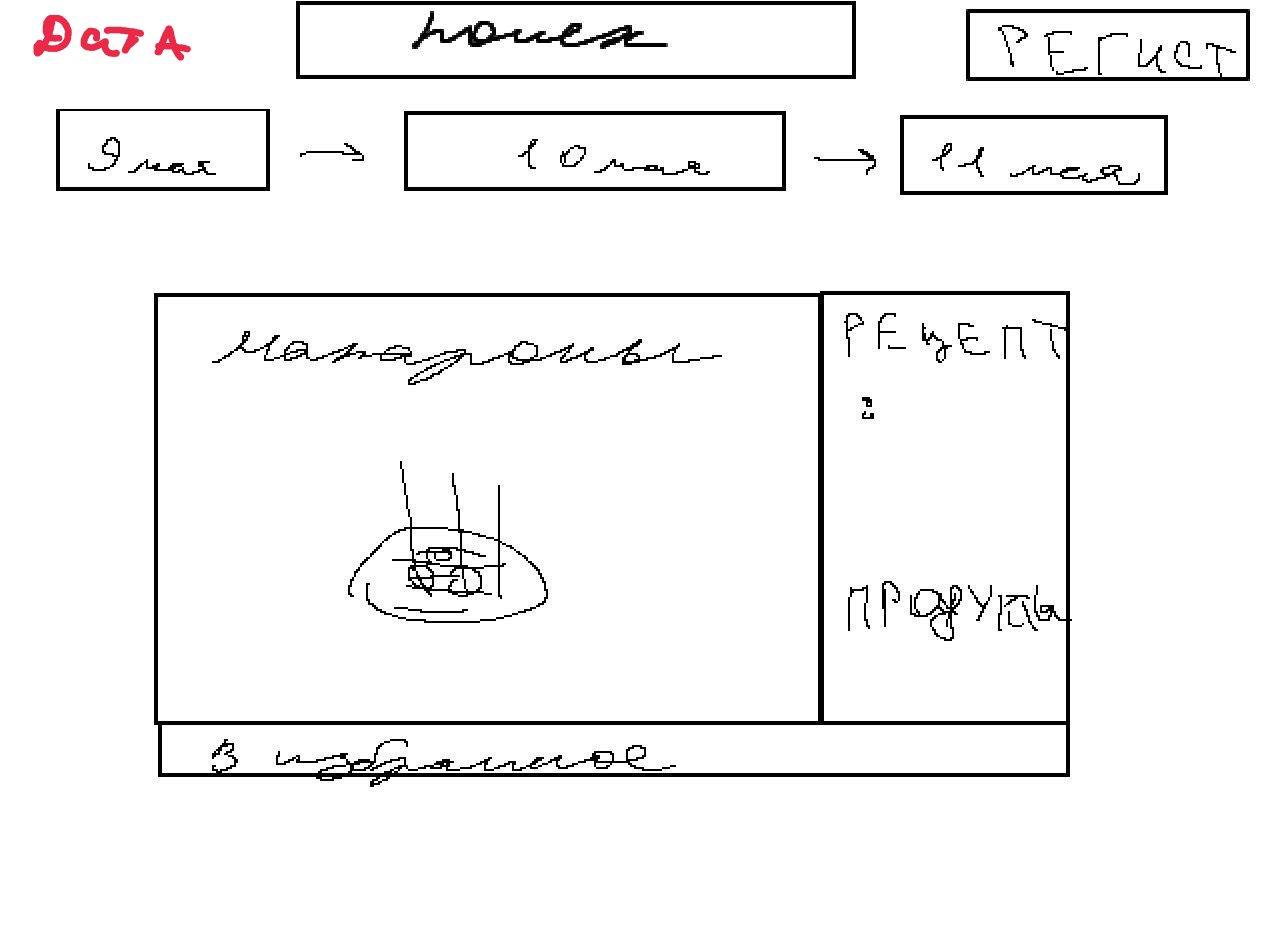 ДАТА
поиск
РЕГИСТ
9 мая → 10 мая → 11 мая
макароны
РЕЦЕПТ
:
ПРОДУКТЫ
В избранное